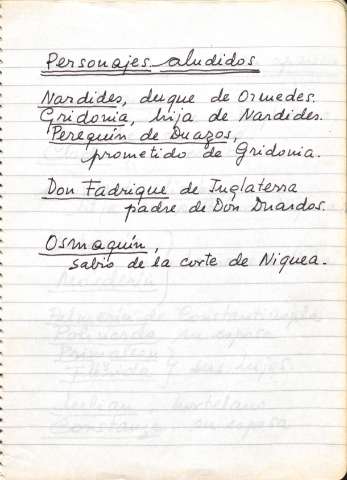 Personajes aludidos
Nardides, duque de Ormedes.
Gridonia, hija de Nardides.
Perequín de Duazos,
prometido de Gridonia.
Don Fadrique de Inglaterra
padre de Don Duardos.
Osmaquín,
sabio de la corte de Niquea.